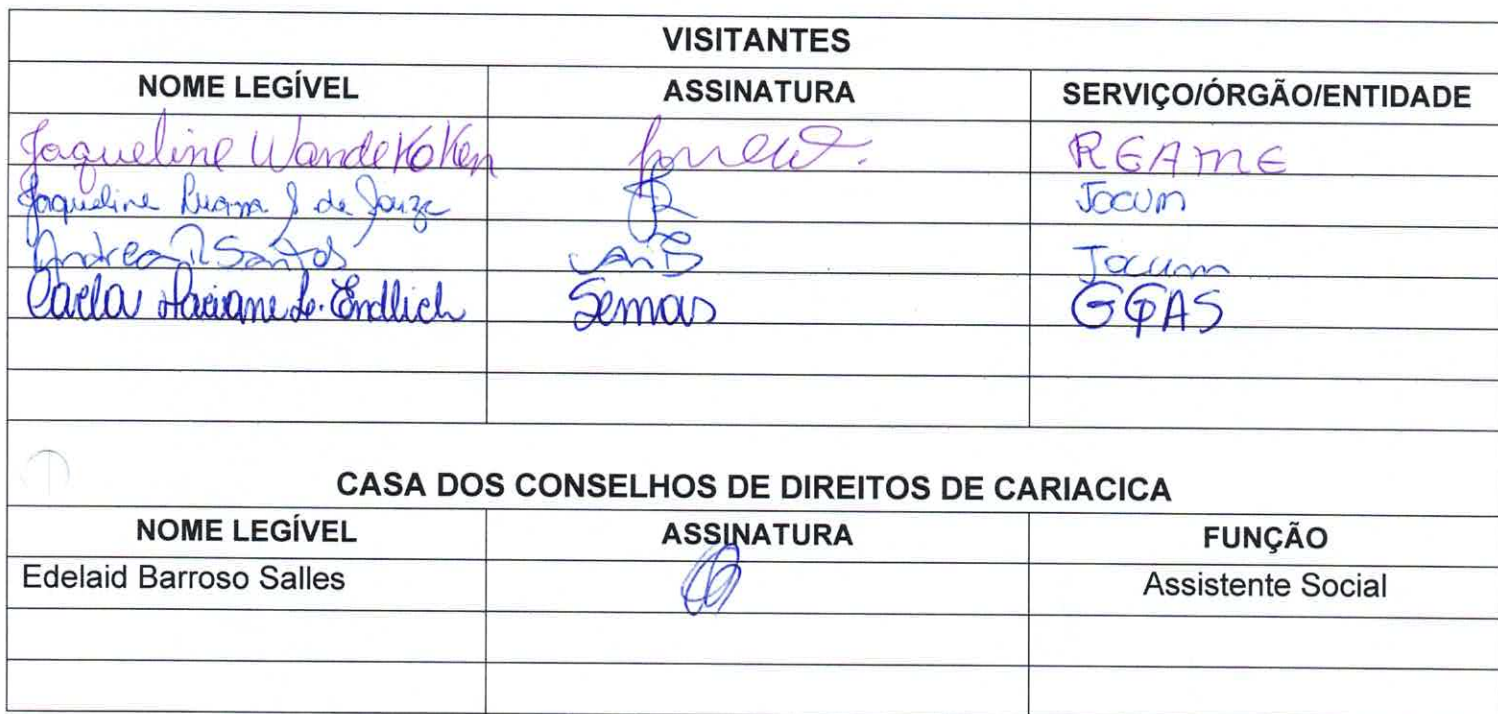 VISITANTES
NOME LEGÍVEL ASSINATURA SERVIÇO/ÓRGÃO/ENTIDADE
Jaqueline Wandekoken REAME
Jaqueline Luana S de Souza Jocum
Andrea R Santos Jocum
Carla Laciane L. Endlich Semas GGAS
CASA DOS CONSELHOS DE DIREITOS DE CARIACICA
NOME LEGÍVEL ASSINATURA FUNÇÃO
Edelaid Barroso Salles Assistente Social